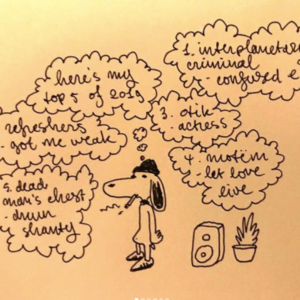 here's my
top 5 of
1. interplanetar
criminal
- confused e
refreshers
- got me weak
3. otik
- actress
4. motëm
- let love
live
5. dead
man's chest
- drum
shanty